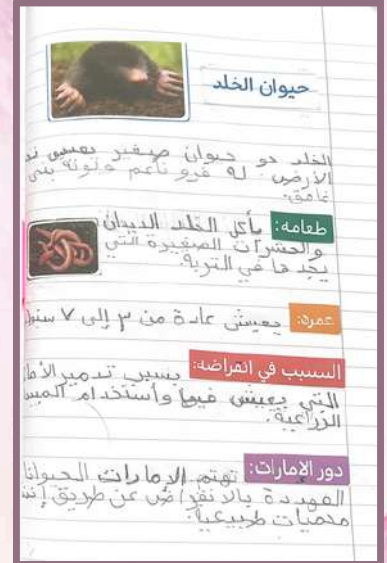 حيوان الخلد
الخلد هو حيوان صغير يعيش
الأرض. له فرو ناعم ولونه بني
غامق.
طعامه: يأكل الخلد الديدان
والحشرات الصغيرة التي
يجدها في التربة.
عمره: يعيش عادة من ٣ إلى ٧
السبب في انقراضه: بسبب تدمير
التي يعيش فيها وأستخدام
الزراعية.
دور الإمارات: تهتم الإمارات
المهددة بالانقراض عن طريق
محميات طبيعية.